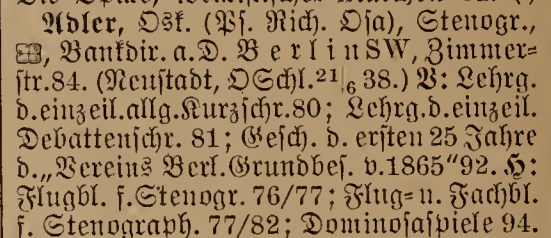 Adler, Osk. (Ps. Rich. Osa), Stenogr.,
Bankdir. a.D. Berlin SW, Zimmer=
str. 84. (Neustadt, OSchl. 21|6 38.) V: Lehrg.
d. einzeil. allg. Kurzschr. 80; Lehrg. d. einzeil.
Debattenschr. 81; Gesch. d. ersten 25 Jahre
d. „Vereins Berl. Grundbes. v. 1865“ 92. H:
Flugbl. f. Stenogr. 76/77; Flug= u. Fachbl.
f. Stenograph. 77/82; Dominosaspiele 94.